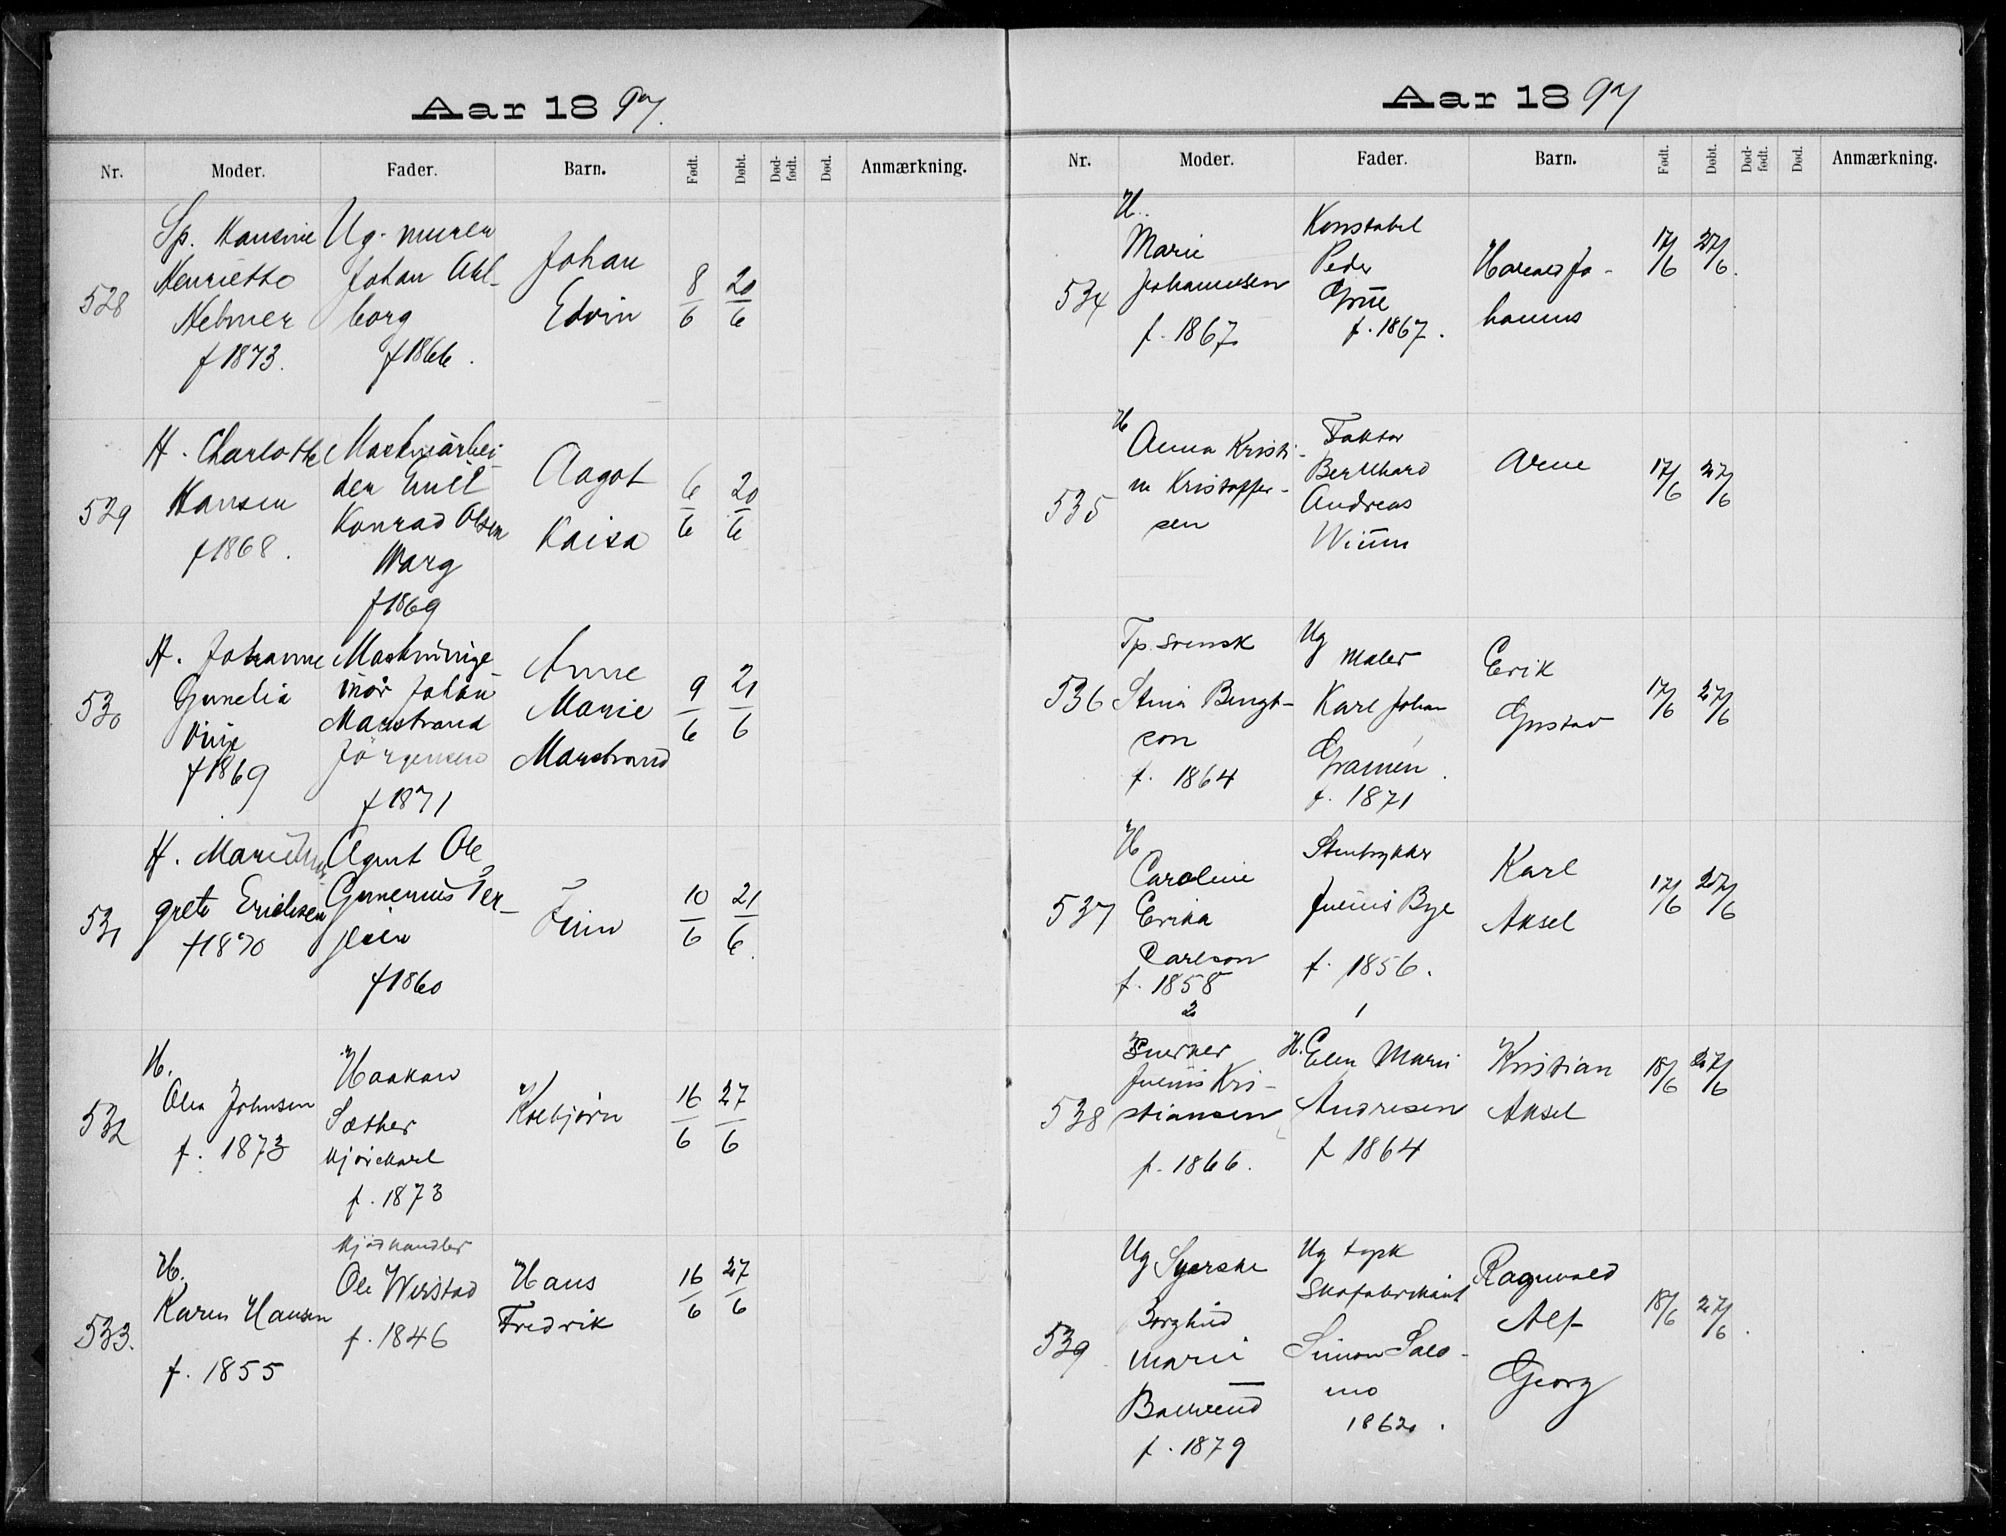 Aar 1897.
Nr. Moder. Fader. Barn. Født. Døbt. Død-født. Død. Anmærkning.
528
Sp. Hansine
Henriette
f 1873.
Ug. murer
Johan Ahl-
borg
f 1866.
Johan
Edvin
8/6 20/6
529
H. Charlotte
Hansen
f 1868.
Maskinarbei-
der Emil
Konrad Olsen
Warg
f 1869
Aagot
Kaisa
6/6 20/6
530
H. Johanne
Gunelia
f 1869
Maskininge
niør Johan
Marstrand
Jörgensen
f 1871
Anne
Marie
Marstrand
9/6 21/6
531
H. Marie
grete Erichsen
f 1870
Agent Ole
Gunerius Ter-
jesen
f 1860
Finn
10/6 21/6.
532
H.
Olea Johnsen
f. 1873
Haakon
Sæther
f. 1873
Kolbjørn
16/6 27/6
533.
H.
Karen Hansen
f. 1855
Mjødhandler
Ole Wirstad
f. 1846
Hans
Fredrik
16/6 27/6
Aar 1897
Nr. Moder. Fader. Barn. Født. Døbt. Død-født. Død. Anmærkning.
534
H.
Marie
Johannesen
f. 1867.
Konstabel
Peder
Grue
f. 1867.
Harald Jo-
hannes
17/6 27/6.
535
H
Anna Kristi-
ne Kristoffer-
sen
Faktor
Bernhard
Andreas
Wium
Arne
17/6 27/6
536
Tp. svensk
Stina Bengt-
son
f. 1864
Ug
Maler
Karl Johan
Gramén.
f. 1871
Erik
Gustav
17/6 27/6
537
H
Caroline
Erika
Carlson
f. 1858
Stentrykker
Julius Bye
f. 1856.
Karl
Aksel
17/6 27/6
538
2
Snerker
Julius Kri-
stiansen
f. 1866.
1
H. Elen Marie
Andresen
f 1864
Kristian
Aksel
18/6 27/6
539
Ug Syerske
Borghild
Marie
f. 1879
Ug
Skofabrikant
Simon Salo-
mo
1862.
Ragnvald
Alf
Georg
18/6 27/6.